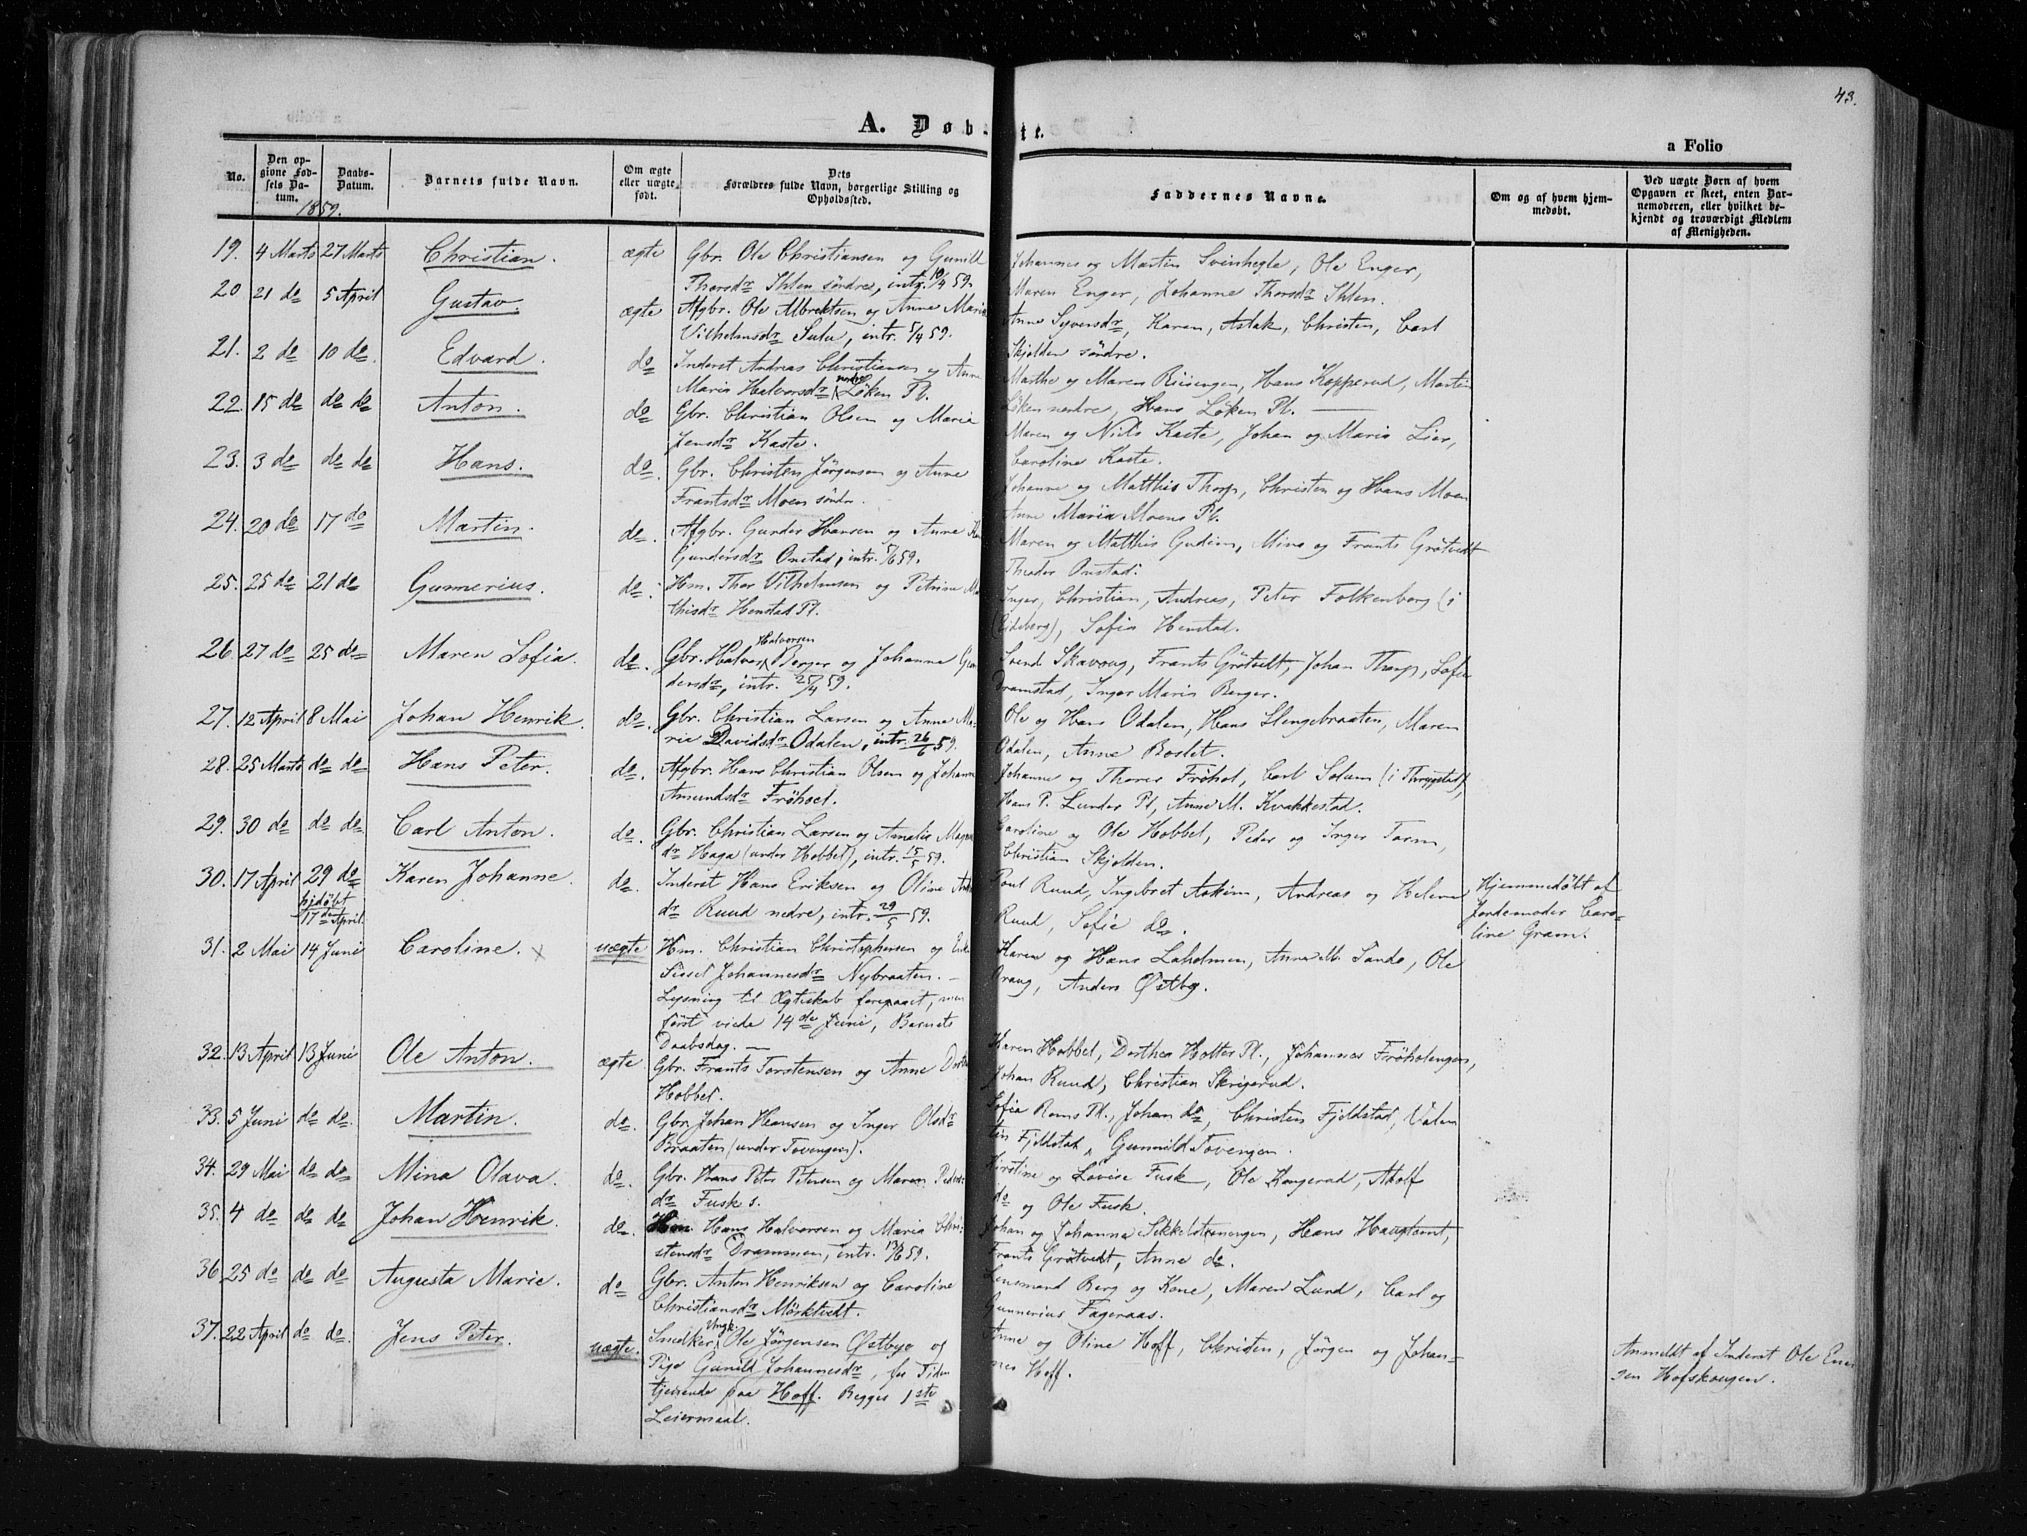 43.
A. Døb te.
a Folio
No.
Den op-
givne Fød-
sels Da-
tum.
Daabs-
Datum.
Barnets fulde Navn.
Om ægte
eller uægte
født.
Dets
Forældres fulde Navn, borgerlige Stilling og
Opholdssted.
Faddernes Navne.
Om og af hvem hjem-
medøbt.
Ved uægte Børn af hvem
Opgaven er skeet, enten Bar-
nemoderen, eller hvilket be-
kjendt og troværdigt Medlem
af Menigheden.
1859.
19. 4 Marts 27 Marts Christian. ægte Gbr. Ole Christiansen og Gunild
Thorsdr Ihlen söndre, intr. 10/4 59.
Johannes og Martin Svinhegle, Ole Enger,
Maren Enger, Johanne Thorsdr Ihlen.
20 21 do 5 April Gustav. ægte Afgbr. Ole Albrektsen og Anne Maria
Vilhelmsdr Sulu, intr. 5/4 59.
Anne Syversdr, Karen, Aslak, Christen, Carl
Skjolden söndre.
21. 2 do 10 do. Edvard. do Inderst Andreas Christiansen og Anne
Maria Halvorsdr nedre Löken Pl.
Marthe og Maren Riisengen, Hans Kopperud, Martin
Löken nedre, Hans Löken Pl.
22. 15 do do do Anton. do. Gbr. Christian Olsen og Maria
Jensdr Kaste.
Maren og Niels Kaste, Johan og Maria Lier,
Caroline Kaste.
23. 3 do do do Hans. do. Gbr. Christen Jørgensen og Anne
Frantsdr Moen söndr.
Johanne og Matthis Thorp, Christen og Hans Moen
Anne Maria Moens Pl.
24. 20 do 17 do Martin. do. Afgbr. Gunder Hansen og Anne
Gundersdr Onstad, intr. 5/6 59.
Maren og Matthis Gudim, Mina og Frants Grötvedt
Theodor Onstad.
25. 25 do 21 do Gunnerius. do. Hm. Thor Vilhelmsen og Petrine Ma
thisdr Henstad Pl.
Inger, Christian, Andreas, Peter Folkenborg (i
Eidsberg), Sofia Henstad.
26. 27 do 25 do Maren Sofia. do. Gbr. Halvor Halvorsen Berger og Johanne Gun
dersdr, intr. 25/4 59.
Svend Skavoug, Frants Grötvedt, Johan Thorp, Sofia
Dramstad, Inger Maria Berger.
27. 12 April 8 Mai Johan Henrik. do. Gbr. Christian Larsen og Anne Ma-
ria Davidsdr Odalen, intr. 26/6 59.
Ole og Hans Odalen, Hans Slengebraaten, Maren
Odalen, Anne Boslet.
28. 25 Marts do do Hans Peter. do. Afgbr. Hans Christian Olsen og Johanne
Amundsdr Fröhoel.
Johanne og Thorer Fröhol, Carl Solum (i Thrygstad),
Hans P. Lunder Pl, Anne M. Kvakkestad.
29. 30 do do do. Carl Anton. do. Gbr. Christian Larsen og Amalie Magn
dr Haga (under Hobbel), intr. 15/5 59.
Caroline og Ole Hobbel, Peder og Inger Torm,
Christian Skjolden.
30. 17 April 29 do
hjdöbt
17de April.
Karen Johanne. do. Inderst Hans Eriksen og Oline
dr Ruud nedre, intr. 29/5 59.
Poul Ruud, Ingebret Askim, Andreas og Helena
Ruud, Sofie do.
Hjemmedöbt af
Jordemoder Caro-
line Gram.
31. 2 Mai 14 Juni Caroline. x uægte Hm. Christian Christophersen og
Sissel Johannesdr Nybraaten. —
Lysning til Ægteskab foregaaet, men
först viede 14de Juni, Barnets
Daabsdag. —
Karen og Hans Laholmen, Anne M. Sande, Ole
Oraug, Anders Østby.
32. 13 April 13 Juni Ole Anton. ægte Gbr. Frants Torstensen og Anne
Hobbel.
Karen Hobbel, Dorthea Holter Pl., Johannes Fröholengen,
Johan Ruud, Christian Skrigerud.
33. 5 Juni do do. Martin. do. Gbr. Johan Hansen og Inger Olsdr
Braaten (under Tovengen).
Sofia Roms Pl., Johan do, Christen Fjeldstad, Valen
tin Fjeldstad, Gunnild Tovengen.
34. 29 Mai do do Mina Olava. do. Gbr. Hans Peter Petersen og Maren Peders
dr Fusk s.
Kirstine og Lovise Fusk, Ole Kongerud, Adolf
do og Ole Fusk.
35. 4 do do do Johan Henrik. do. Hm Hans Halvorsen og Maria Chri-
stensdr Drammen, intr. 13/6 59.
Johan og Johanna Sekkelstenengen, Hans Haugtomt,
Frants Grötvedt, Anne do.
36 25 do do do Augusta Marie. do Gbr. Anton Henriksen og Caroline
Christiansdr Mörktvedt.
Lensmand Berg og Kone, Maren Lund, Carl og
Gunnerius Fageraas.
37. 22 April do do. Jens Peter. uægte. Snedker Ungk. Ole Jörgensen Østbye og
Pige Gunild Johannesdr, for Tiden
tjenende paa Hoff. Begges 1ste
Leiermaal.
Anne og Oline Hoff, Christen, Jörgen og Johan-
nes Hoff.
Anmeldt af Inderst Ole
sen Hofskougen.